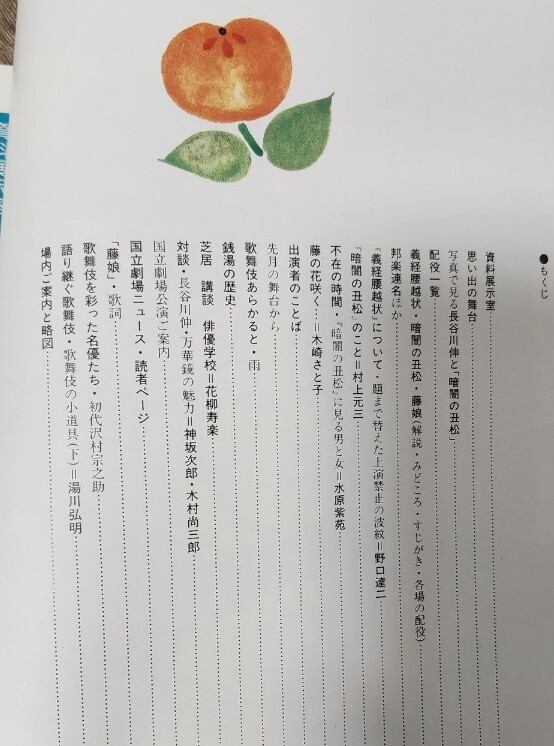 ●もくじ
資料展示室
思い出の舞台
写真で見る長谷川伸と「暗闇の丑松」
配役一覧
義経腰越状・暗闇の丑松・藤娘(解説・みどころ・すじがき・各場の配役)
邦楽連名ほか
『義経腰越状』について・題まで替えた上演禁止の波紋＝野口達二
『暗闇の丑松』のこと＝村上元三
不在の時間・『暗闇の丑松』に見る男と女＝水原紫苑
藤の花咲く…＝木崎さと子
出演者のことば
先月の舞台から
歌舞伎あらかると・雨
銭湯の歴史
芝居　講談　俳優学校＝花柳寿楽
対談・長谷川伸・万華鏡の魅力＝神坂次郎・木村尚三郎
国立劇場公演ご案内
国立劇場ニュース・読者ページ
「藤娘」・歌詞
歌舞伎を彩った名優たち・初代沢村宗之助
語り継ぐ歌舞伎・歌舞伎の小道具(下)＝湯川弘明
場内ご案内と略図